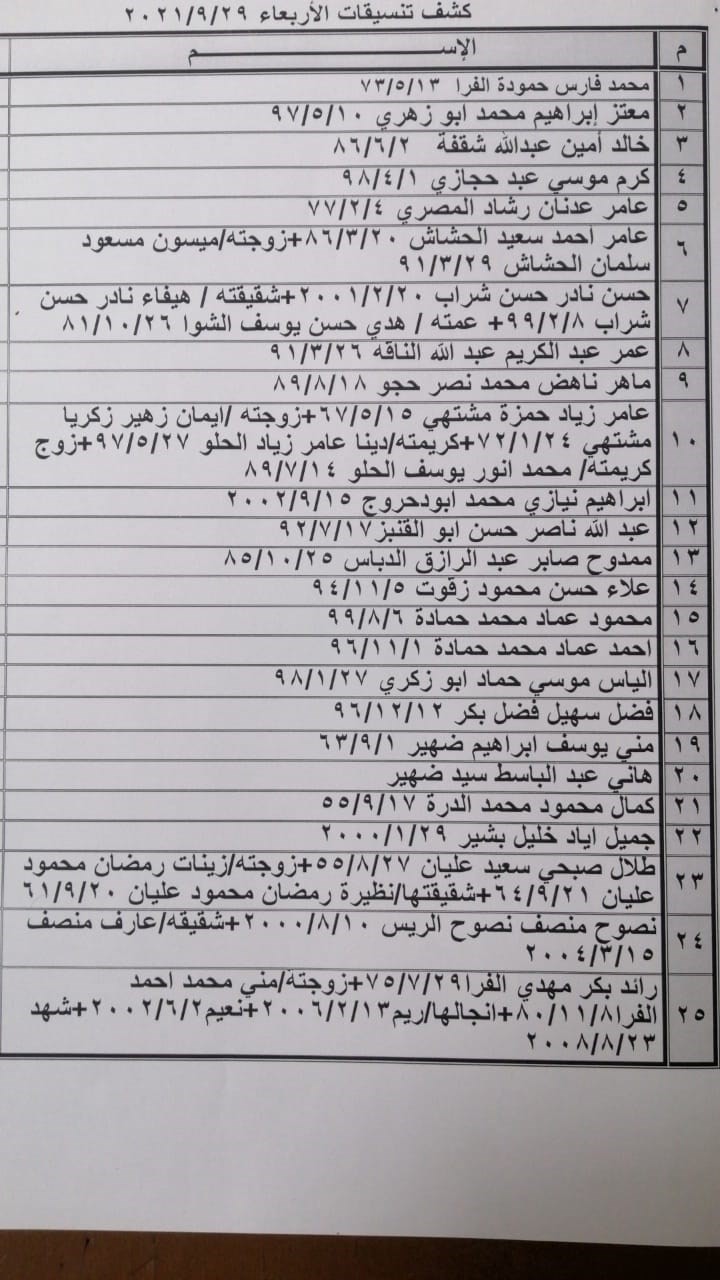 كشف تنسيقات الأربعاء ٢٠٢١/٩/٢٩
م الإســـــــــم
١ محمد فارس حمودة الفرا ٧٣/٥/١٣
٢ معتز إبراهيم محمد ابو زهري ٩٧/٥/١٠
٣ خالد أمين عبدالله شقفة ٨٦/٦/٢
٤ كرم موسي عبد حجازي ٩٨/٤/١
٥ عامر عدنان رشاد المصري ٧٧/٢/٤
٦ عامر احمد سعيد الحشاش ٨٦/٣/٢٠+زوجته/ميسون مسعود
سلمان الحشاش ٩١/٣/٢٩
٧ حسن نادر حسن شراب ٢٠٠١/٢/٢٠+شقيقته / هيفاء نادر حسن
شراب ٩٩/٢/٨+ عمته / هدي حسن يوسف الشوا ٨١/١٠/٢٦
٨ عمر عبد الكريم عبد الله الناقه ٩١/٣/٢٦
٩ ماهر ناهض محمد نصر حجو ٨٩/٨/١٨
١٠ عامر زياد حمزة مشتهي ٦٧/٥/١٥+زوجته /ايمان زهير زكريا
مشتهي ٧٢/١/٢٤+كريمته/دينا عامر زياد الحلو ٩٧/٥/٢٧+زوج
كريمته/ محمد انور يوسف الحلو ٨٩/٧/١٤
١١ ابراهيم نيازي محمد ابودحروج ٢٠٠٢/٩/١٥
١٢ عبد الله ناصر حسن ابو القنبز٩٢/٧/١٧
١٣ ممدوح صابر عبد الرازق الدباس ٨٥/١٠/٢٥
١٤ علاء حسن محمود زقوت ٩٤/١١/٥
١٥ محمود عماد محمد حمادة ٩٩/٨/٦
١٦ احمد عماد محمد حمادة ٩٦/١١/١
١٧ الياس موسي حماد ابو زكري ٩٨/١/٢٧
١٨ فضل سهيل فضل بكر ٩٦/١٢/١٢
١٩ مني يوسف ابراهيم ضهير ٦٣/٩/١
٢٠ هاني عبد الباسط سيد ضهير
٢١ كمال محمود محمد الدرة ٥٥/٩/١٧
٢٢ جميل اياد خليل بشير ٢٠٠٠/١/٢٩
٢٣ طلال صبحي سعيد عليان ٥٥/٨/٢٧+زوجته/زينات رمضان محمود
عليان ٦٤/٩/٢١+شقيقتها/نظيرة رمضان محمود عليان ٦١/٩/٢٠
٢٤ نصوح منصف نصوح الريس ٢٠٠٠/٨/١٠+شقيقه/عارف منصف
٢٠٠٤/٣/١٥
٢٥ رائد بكر مهدي الفرا٧٥/٧/٢٩+زوجتة/مني محمد احمد
الفرا٨٠/١١/٨+انجالها/ريم٢٠٠٦/٢/١٣+نعيم٢٠٠٢/٦/٢+شهد
٢٠٠٨/٨/٢٣